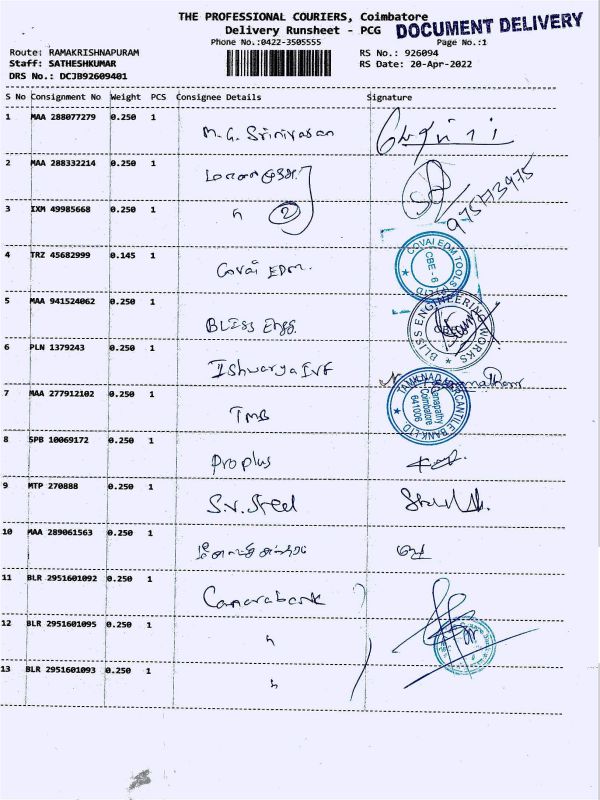 THE PROFESSIONAL COURIERS, Coimbatore
Delivery Runsheet - PCG
DOCUMENT DELIVERY
Phone No.:0422-3505555
Page No.:1
Route: RAMAKRISHNAPURAM
RS No.: 926094
Staff: SATHESHKUMAR
RS Date: 20-Apr-2022
DRS No.: DCJB92609401
S No Consignment No Weight PCS Consignee Details Signature
1 MAA 288077279 0.250 1 M. G. Srinivasan
2 MAA 288332214 0.250 1
3 IXM 49985668 0.250 1 〃 2
4 TRZ 45682999 0.145 1 Covai EDM.
COVAI EDM TOOLS (P) LTD
CBE - 6
5 MAA 941524062 0.250 1 BLISS Engg.
BLISS ENGINEERING WORKS
6 PLN 1379243 0.250 1 Ishwarya IVF
7 MAA 277912102 0.250 1 TMB
TAMILNAD MERCANTILE BANK LTD
Ganapathy
Coimbatore
641006
8 SPB 10069172 0.250 1 Proplus
9 MTP 270888 0.250 1 S.V. Steel
10 MAA 289061563 0.250 1
11 BLR 2951601092 0.250 1 Canarabank
12 BLR 2951601095 0.250 1 〃
13 BLR 2951601093 0.250 1 〃